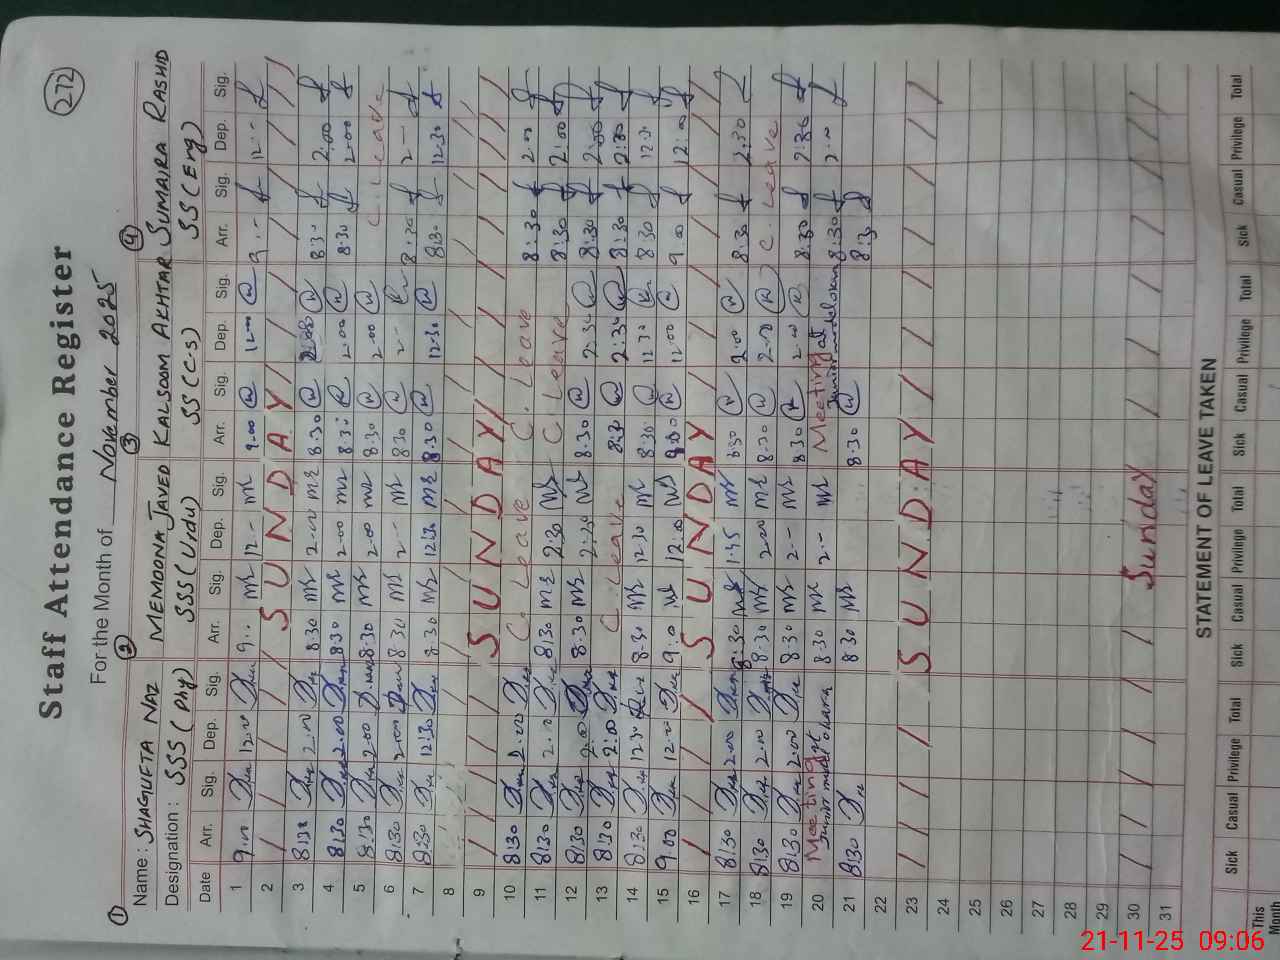 272
Staff Attendance Register
For the Month of November 2025
① Name: SHAGUFTA NAZ ② MEMOONA JAVED ③ KALSOOM AKHTAR ④ SUMAIRA RASHID
Designation: SSS (Phy) SSS (Urdu) SS (C.S) SS (Eng)
Date Arr. Sig. Dep. Sig. Arr. Sig. Dep. Sig. Arr. Sig. Dep. Sig. Arr. Sig. Dep. Sig.
1 9:00 12:00 9:- 12:- 9:00 12:00 9:- 12:-
2 SUNDAY
3 8:30 2:00 8:30 2:00 8:30 8:30 2:00
4 8:30 2:00 8:30 2:00 8:30 2:00 8:30 2:00
5 8:30 2:00 8:30 2:00 8:30 2:00 C. Leave
6 8:30 2:00 8:30 2:- 8:30 2:- 8:30 2:-
7 8:30 12:30 8:30 12:30 8:30 12:30 8:30 12:30
8
9 SUNDAY
10 8:30 2:00 C. Leave C. Leave 8:30 2:00
11 8:30 2:00 8:30 2:30 C. Leave 8:30 2:00
12 8:30 2:00 8:30 2:30 8:30 2:30 8:30 2:00
13 8:30 2:00 C. Leave 8:30 2:30 8:30 2:30
14 8:30 12:30 8:30 12:30 8:30 12:30 8:30 12:30
15 9:00 12:00 9:0 12:00 9:00 12:00 9:00 12:00
16 SUNDAY
17 8:30 2:00 8:30 1:45 8:30 2:00 8:30 2:30
18 8:30 2:00 8:30 2:00 8:30 2:00 C. Leave
19 8:30 2:00 8:30 2:- 8:30 2:00 8:30 2:30
20 Meeting at Junior model 8:30 2:- Meeting at Junior model 8:30 2:00
21 8:30 8:30 8:30 8:30
22
23 SUNDAY
24
25
26
27
28
29
30 Sunday
31
STATEMENT OF LEAVE TAKEN
Sick Casual Privilege Total Sick Casual Privilege Total Sick Casual Privilege Total Sick Casual Privilege Total
This Month
21-11-25 09:06